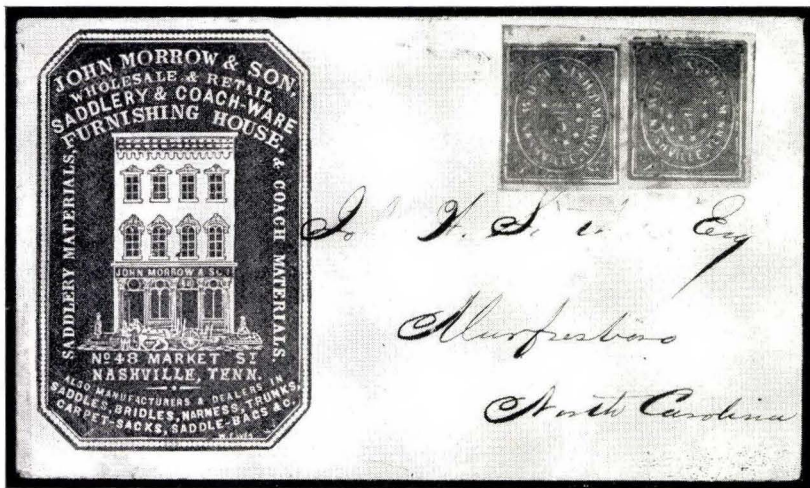 JOHN MORROW & SON,
WHOLESALE & RETAIL
SADDLERY & COACH-WARE
FURNISHING HOUSE,
SADDLERY MATERIALS,
& COACH MATERIALS
JOHN MORROW & SON
48
No 48 MARKET ST
NASHVILLE, TENN.
ALSO MANUFACTURERS & DEALERS IN
SADDLES, BRIDLES, HARNESS, TRUNKS,
CARPET-SACKS, SADDLE-BAGS &C.
5
5
Esq
Murfresboro
North Carolina